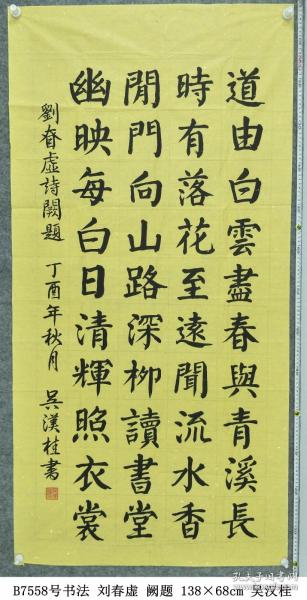 道由白雲盡春與青溪長
時有落花至遠聞流水香
閒門向山路深柳讀書堂
幽映每白日清輝照衣裳
劉眘虛詩闕題 丁酉年秋月 吳漢桂書
B7558号书法 刘春虚 阙题 138×68cm 吴汉桂